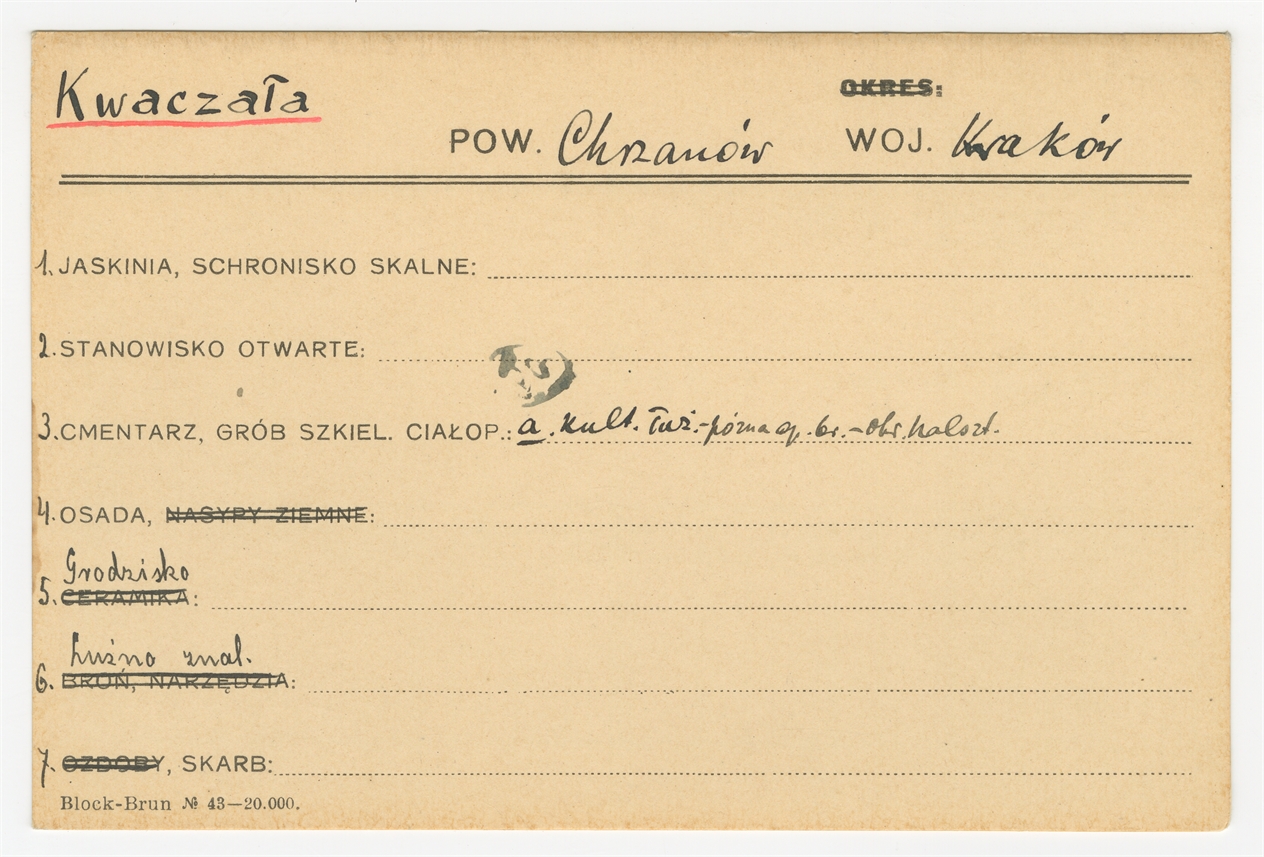 Kwaczała
OKRES:
POW. Chrzanów WOJ. Kraków
1. JASKINIA, SCHRONISKO SKALNE:
2. STANOWISKO OTWARTE:
3. CMENTARZ, GRÓB SZKIEL. CIAŁOP.: a. kult. łuż.-późna ep. br. - okr. halszt.
4. OSADA, NASYPY ZIEMNE:
Grodzisko
5. CERAMIKA:
Luźno znal.
6. BROŃ, NARZĘDZIA:
7. OZDOBY, SKARB:
Block-Brun № 43—20.000.